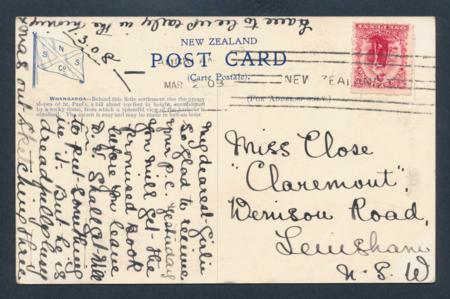 have to be up early in the morning
1.3.08
U S N
S S
Co
NEW ZEALAND
POST CARD
(Carte Postale).
MAR 2 08
NEW ZEALAND
ONE PENNY
WHANGAROA—Behind this little settlement rise the grassy
slopes of St. Paul's, a hill about 700 feet in height, surmounted
by a rocky dome, from which a splendid view of the harbour is
obtained. The ascent is easy and may be made in half-an-hour.
(FOR ADDRESS ONLY.)
My dearest Girlie
So glad to receive
your p.c. yesterday
You will get the
promised book
before you leave
N.Z. Shall get Will
to put something
in it. But he is
dreadfully busy
Long & out Sketching. Have
Miss Close
"Claremont",
Denison Road,
Lewisham
N.S.W